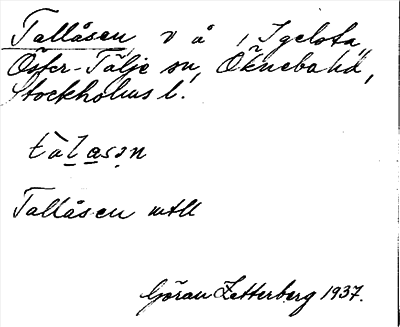 Tallåsen, v å, Igelsta,
Öster-Tälje sn, Öknebo hd,
Stockholms l.
tàlasən
Tallåsen mtll
Göran Zetterberg 1937.